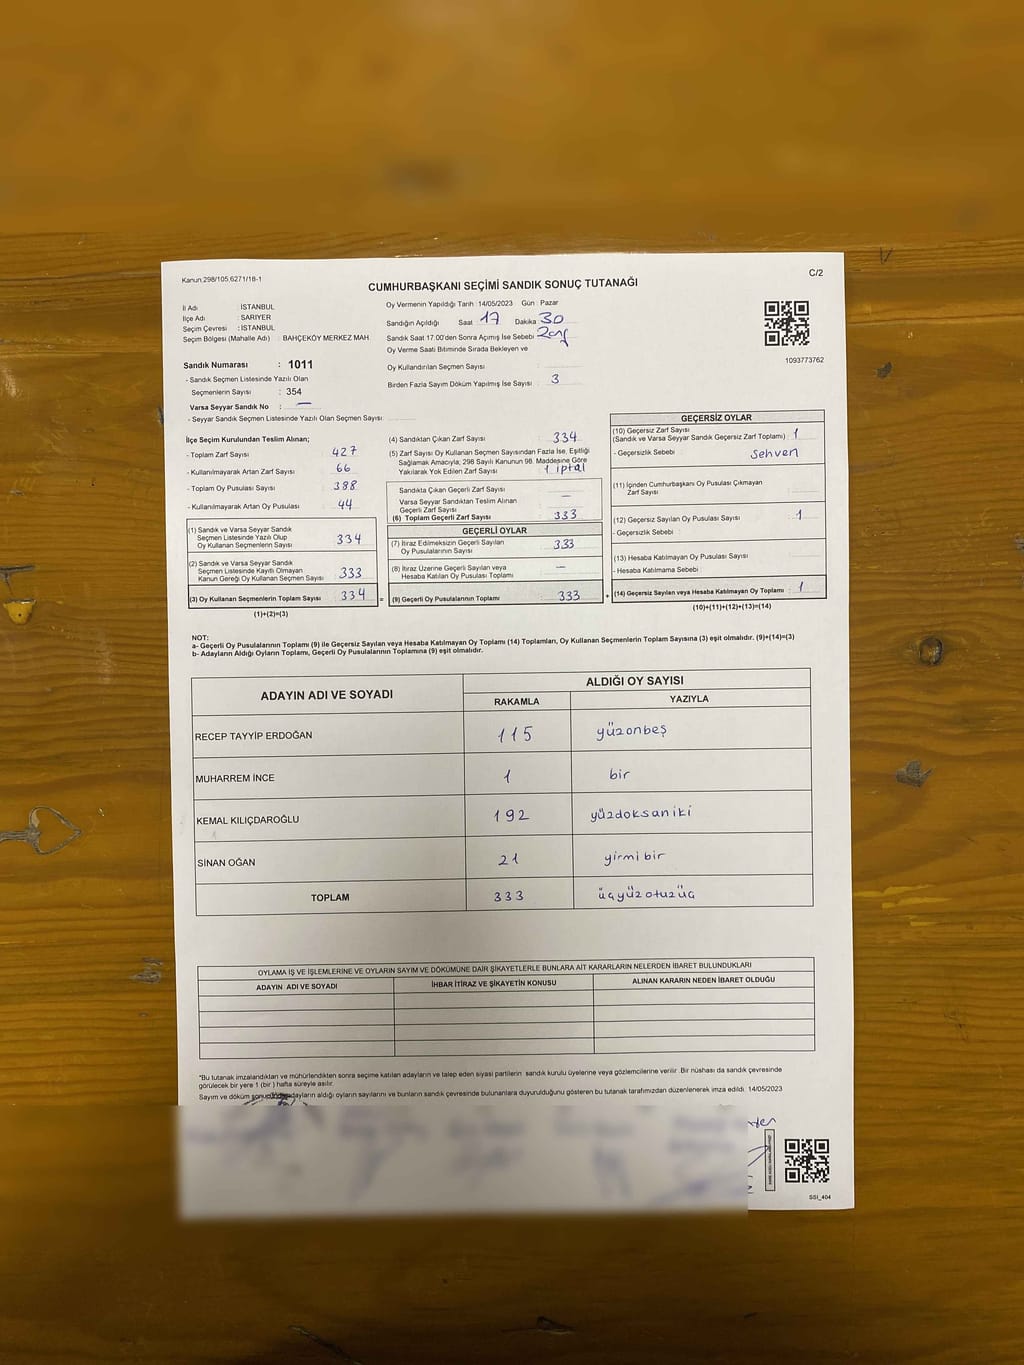 Kanun:298/105,6271/18-1
C/2
CUMHURBAŞKANI SEÇİMİ SANDIK SONUÇ TUTANAĞI
İl Adı : İSTANBUL
İlçe Adı : SARIYER
Seçim Çevresi : İSTANBUL
Seçim Bölgesi (Mahalle Adı) : BAHÇEKÖY MERKEZ MAH
Oy Vermenin Yapıldığı Tarih :14/05/2023 Gün : Pazar
Sandığın Açıldığı Saat 17 Dakika 30
Sandık Saat 17:00'den Sonra Açımış İse Sebebi
Oy Verme Saati Bitiminde Sırada Bekleyen ve
Oy Kullandırılan Seçmen Sayısı :
Birden Fazla Sayım Döküm Yapılmış İse Sayısı : 3
1093773762
Sandık Numarası : 1011
- Sandık Seçmen Listesinde Yazılı Olan
Seçmenlerin Sayısı : 354
Varsa Seyyar Sandık No : —
- Seyyar Sandık Seçmen Listesinde Yazılı Olan Seçmen Sayısı
İlçe Seçim Kurulundan Teslim Alınan;
- Toplam Zarf Sayısı : 427
- Kullanılmayarak Artan Zarf Sayısı : 66
- Toplam Oy Pusulası Sayısı : 388
- Kullanılmayarak Artan Oy Pusulası : 44
(1) Sandık ve Varsa Seyyar Sandık
Seçmen Listesinde Yazılı Olup
Oy Kullanan Seçmenlerin Sayısı 334
(2) Sandık ve Varsa Seyyar Sandık
Seçmen Listesinde Kayıtlı Olmayan
Kanun Gereği Oy Kullanan Seçmen Sayısı 333
(3) Oy Kullanan Seçmenlerin Toplam Sayısı 334 =
(1)+(2)=(3)
(4) Sandıktan Çıkan Zarf Sayısı : 334
(5) Zarf Sayısı Oy Kullanan Seçmen Sayısından Fazla İse, Eşitliği
Sağlamak Amacıyla; 298 Sayılı Kanunun 98. Maddesine Göre
Yakılarak Yok Edilen Zarf Sayısı : 1 iptal
Sandıkta Çıkan Geçerli Zarf Sayısı :
Varsa Seyyar Sandıktan Teslim Alınan
Geçerli Zarf Sayısı : —
(6) Toplam Geçerli Zarf Sayısı : 333
GEÇERLİ OYLAR
(7) İtiraz Edilmeksizin Geçerli Sayılan
Oy Pusulalarının Sayısı : 333
(8) İtiraz Üzerine Geçerli Sayılan veya
Hesaba Katılan Oy Pusulası Toplamı : —
(9) Geçerli Oy Pusulalarının Toplamı : 333 +
GEÇERSİZ OYLAR
(10) Geçersiz Zarf Sayısı
(Sandık ve Varsa Seyyar Sandık Geçersiz Zarf Toplamı) : 1
- Geçersizlik Sebebi : Sehven
(11) İçinden Cumhurbaşkanı Oy Pusulası Çıkmayan
Zarf Sayısı :
(12) Geçersiz Sayılan Oy Pusulası Sayısı : 1
- Geçersizlik Sebebi :
(13) Hesaba Katılmayan Oy Pusulası Sayısı :
- Hesaba Katılmama Sebebi :
(14) Geçersiz Sayılan veya Hesaba Katılmayan Oy Toplamı : 1
(10)+(11)+(12)+(13)=(14)
NOT:
a- Geçerli Oy Pusulalarının Toplamı (9) ile Geçersiz Sayılan veya Hesaba Katılmayan Oy Toplamı (14) Toplamları, Oy Kullanan Seçmenlerin Toplam Sayısına (3) eşit olmalıdır. (9)+(14)=(3)
b- Adayların Aldığı Oyların Toplamı, Geçerli Oy Pusulalarının Toplamına (9) eşit olmalıdır.
ADAYIN ADI VE SOYADI
ALDIĞI OY SAYISI
RAKAMLA YAZIYLA
RECEP TAYYİP ERDOĞAN 115 yüzonbeş
MUHARREM İNCE 1 bir
KEMAL KILIÇDAROĞLU 192 yüzdoksaniki
SİNAN OĞAN 21 yirmi bir
TOPLAM 333 üçyüz otuzüç
OYLAMA İŞ VE İŞLEMLERİNE VE OYLARIN SAYIM VE DÖKÜMÜNE DAİR ŞİKAYETLERLE BUNLARA AİT KARARLARIN NELERDEN İBARET BULUNDUKLARI
ADAYIN ADI VE SOYADI İHBAR İTİRAZ VE ŞİKAYETİN KONUSU ALINAN KARARIN NEDEN İBARET OLDUĞU
*Bu tutanak imzalandıktan ve mühürlendikten sonra seçime katılan adayların ve talep eden siyasi partilerin sandık kurulu üyelerine veya gözlemcilerine verilir. Bir nüshası da sandık çevresinde
görülecek bir yere 1 (bir) hafta süreyle asılır.
Sayım ve döküm adayların aldığı oyların sayılarını ve bunların sandık çevresinde bulunanlara duyurulduğunu gösteren bu tutanak tarafımızdan düzenlenerek imza edildi. 14/05/2023
SSİ_404